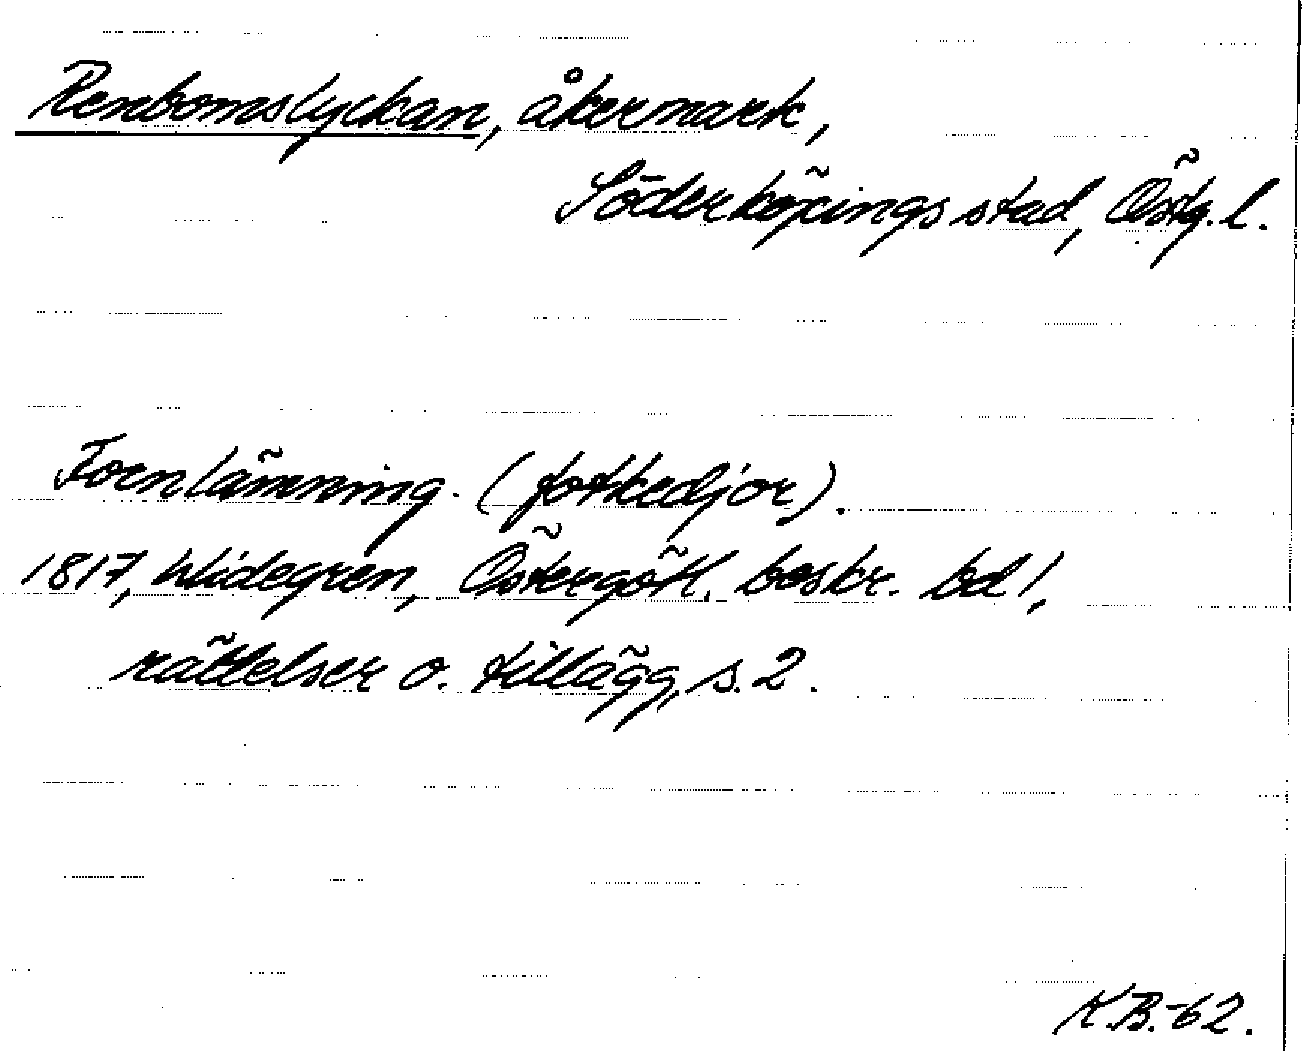 Renbomslyckan, åkermark,
Söderköpings stad, Östg. l.
Fornlämning. (fotkedjor).
1817, Widegren, Östergötl. beskr. bd 1,
rättelser o. tillägg, s. 2.
K.B.-62.